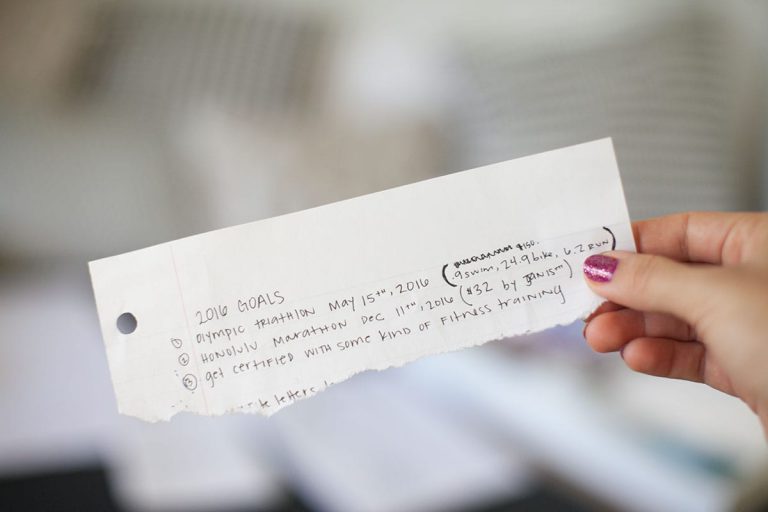 2016 GOALS
$150.
① OLYMPIC TRIATHLON MAY 15TH, 2016 (.9 swim, 24.9 bike, 6.2 RUN)
② HONOLULU MARATHON DEC 11TH, 2016 ($32 by JAN 15TH)
③ get CERTIFIED WITH some KIND OF FITNESS training
letters